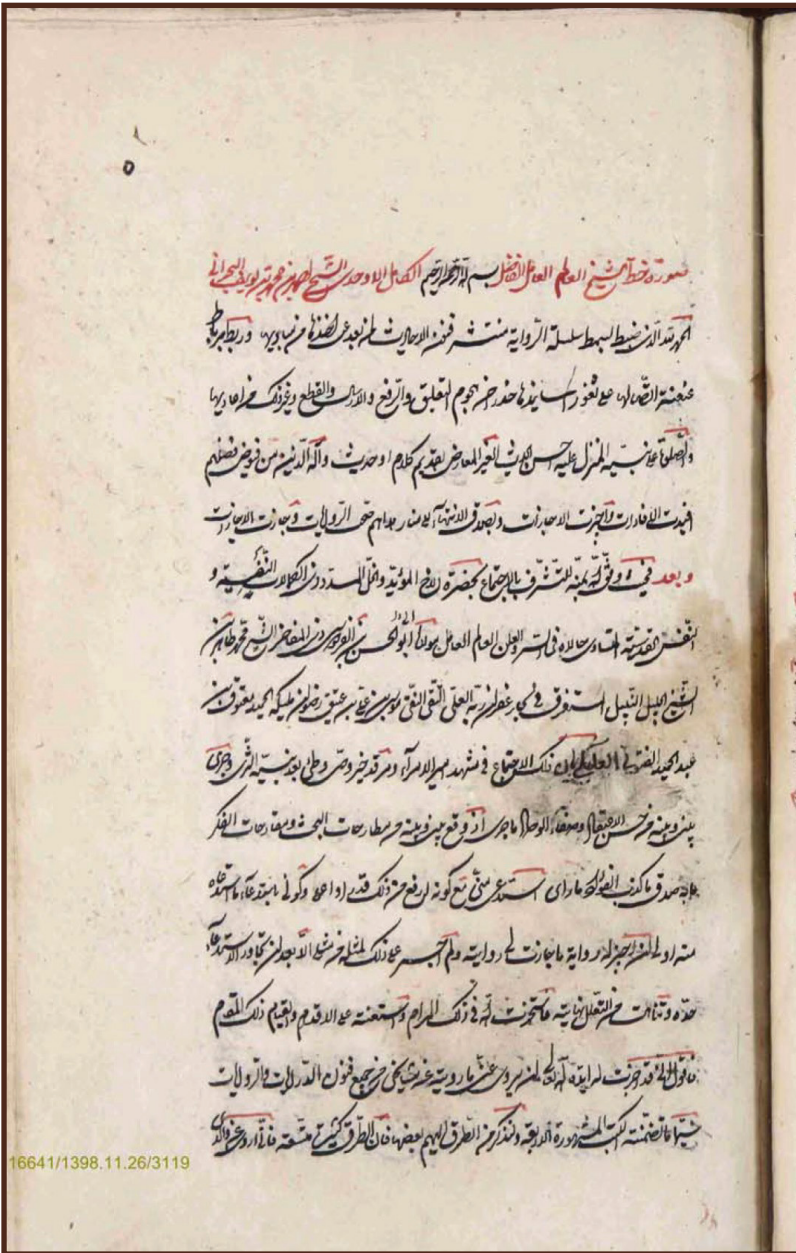 ٥
صورة خط الشيخ العالم العامل الفاضل بسم الله الرحمن الرحيم الكامل الاوحدى الشيخ احمد بن محمد بن يوسف البحرانى
الحمد لله الذى ضبط بسمط سلسلة الرواية منتشر فنون الاحاديث لمن بعد عن اخذها من مباديها وربط برباط
عنعنة اتصالها على ثغور اسانيدها حذرا من هجوم التعليق والرفع والارسال والقطع وغير ذلك من اعاديها
والصلوة على نبيه المنزل عليه احسن الحديث الغير المعارض بقديم كلام او حديث وآله الذين من فيوض فضلهم
افيدت الافادات واجيزت الاجازات وبصدق الانتهاء الى منار هداهم صحت الروايات وجازت الاجازات
وبعد وفق الله بمنه للتشرف بالاجتماع بحضرة الاخ المؤيد والخل المسدد ذى الكمالات النفسية و
النفس القدسية المتساوى حالاه فى السر والعلن العالم العامل مولانا ابو الحسن المفاخر الشيخ محمد طاهر بن
الشيخ الجليل النبيل المستغرق فى بحار غفران ربه العلى التقى النقى موسى بن على بن معتوق بن
عبد الحميد الفتونى العاملى ذلك الاجتماع فى مشهد امير الامراء ومرقد خير وصى وطئ بعد نبيه الثرى وجرى
بينى وبينه من حسن الاعتقاد وصفاء الوداد ما جرى اذ وقع بينى وبينه من مطارحات البحث ومقادحات الفكر
ما راى استدعى منى مع كونه ارفع من ذلك قدرا وكونى باستدعاء ما استدعاه
منه اولى ان اجيز له رواية ما جازت لى روايته ولم اجسر على ذلك لمثله من مثلى الا بعد ان تجاوز الاستدعاء
حده وتناهت من التعلل نهايته فاستخرت الله فى ذلك المرام واستعنته على الاقدام والقيام ذلك المقام
فاقول انى قد اجزت له ايده الله تعالى ان يروى عنى ما رويته عن مشايخى من جميع فنون الدرايات والروايات
سيما ما تضمنته الكتب المشهورة الاربعة ولنذكر من الطرق اليهم بعضها فان الطرق كثيرة متسعة فانى اروى عن والدى
16641/1398.11.26/3119